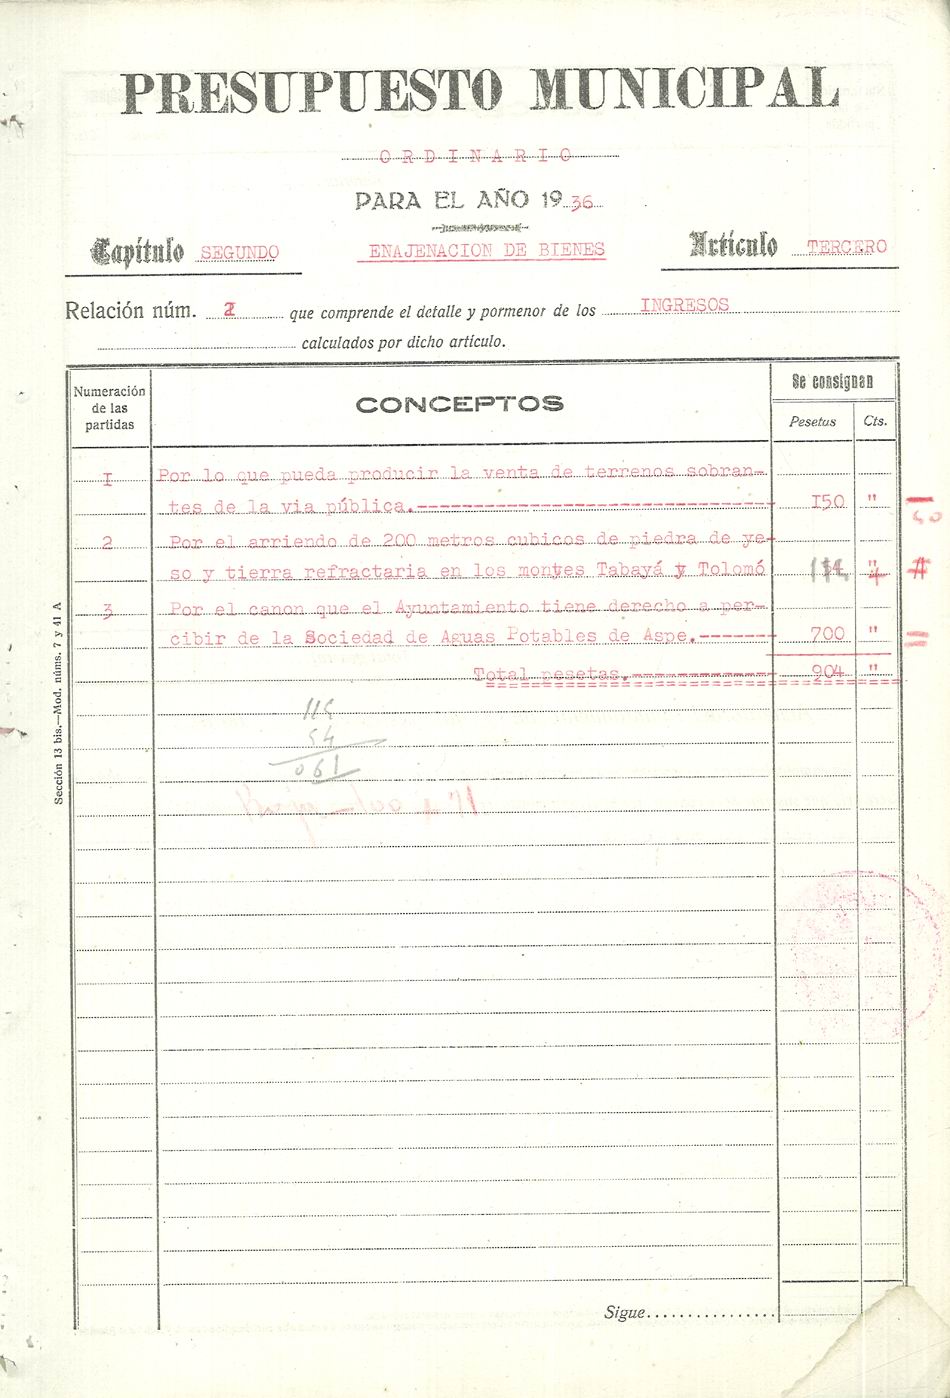 PRESUPUESTO MUNICIPAL
ORDINARIO
PARA EL AÑO 1936
Capítulo SEGUNDO ENAJENACION DE BIENES Artículo TERCERO
Relación núm. 2 que comprende el detalle y pormenor de los INGRESOS
calculados por dicho artículo.
Numeración de las partidas CONCEPTOS Se consignan
Pesetas Cts.
I Por lo que pueda producir la venta de terrenos sobran-
tes de la via pública.------------------------------- I50 "
2 Por el arriendo de 200 metros cubicos de piedra de ye-
so y tierra refractaria en los montes Tabayá y Tolomó
3 Por el canon que el Ayuntamiento tiene derecho a per-
cibir de la Sociedad de Aguas Potables de Aspe.------- 700 "
Total pesetas.------------- 904 "
115
54
061
Sigue
Sección 13 bis.—Mod. núms. 7 y 41 A